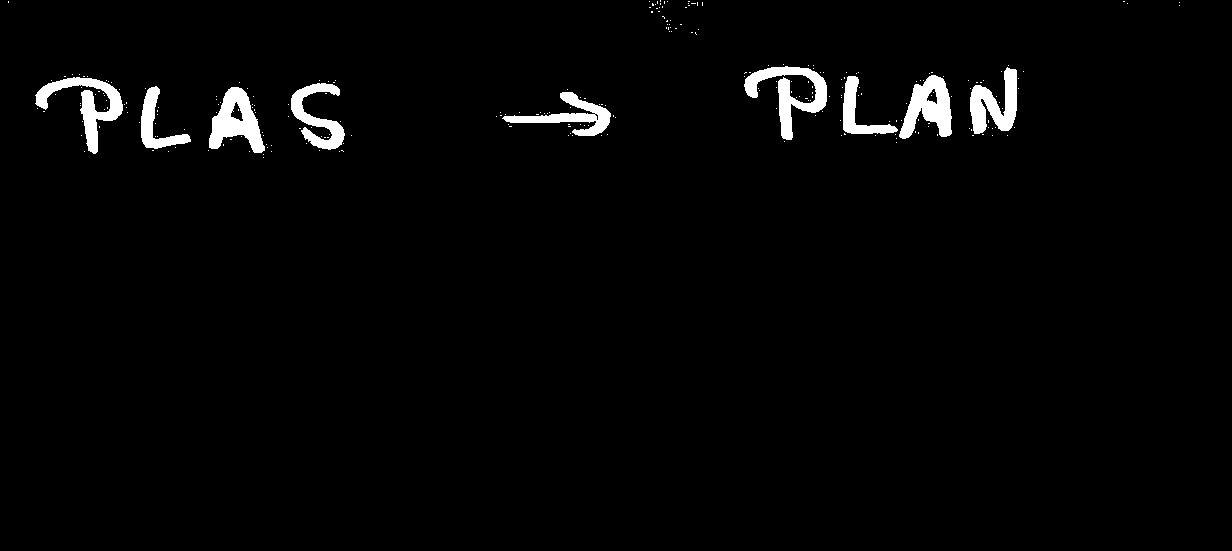 PLAS → PLAN